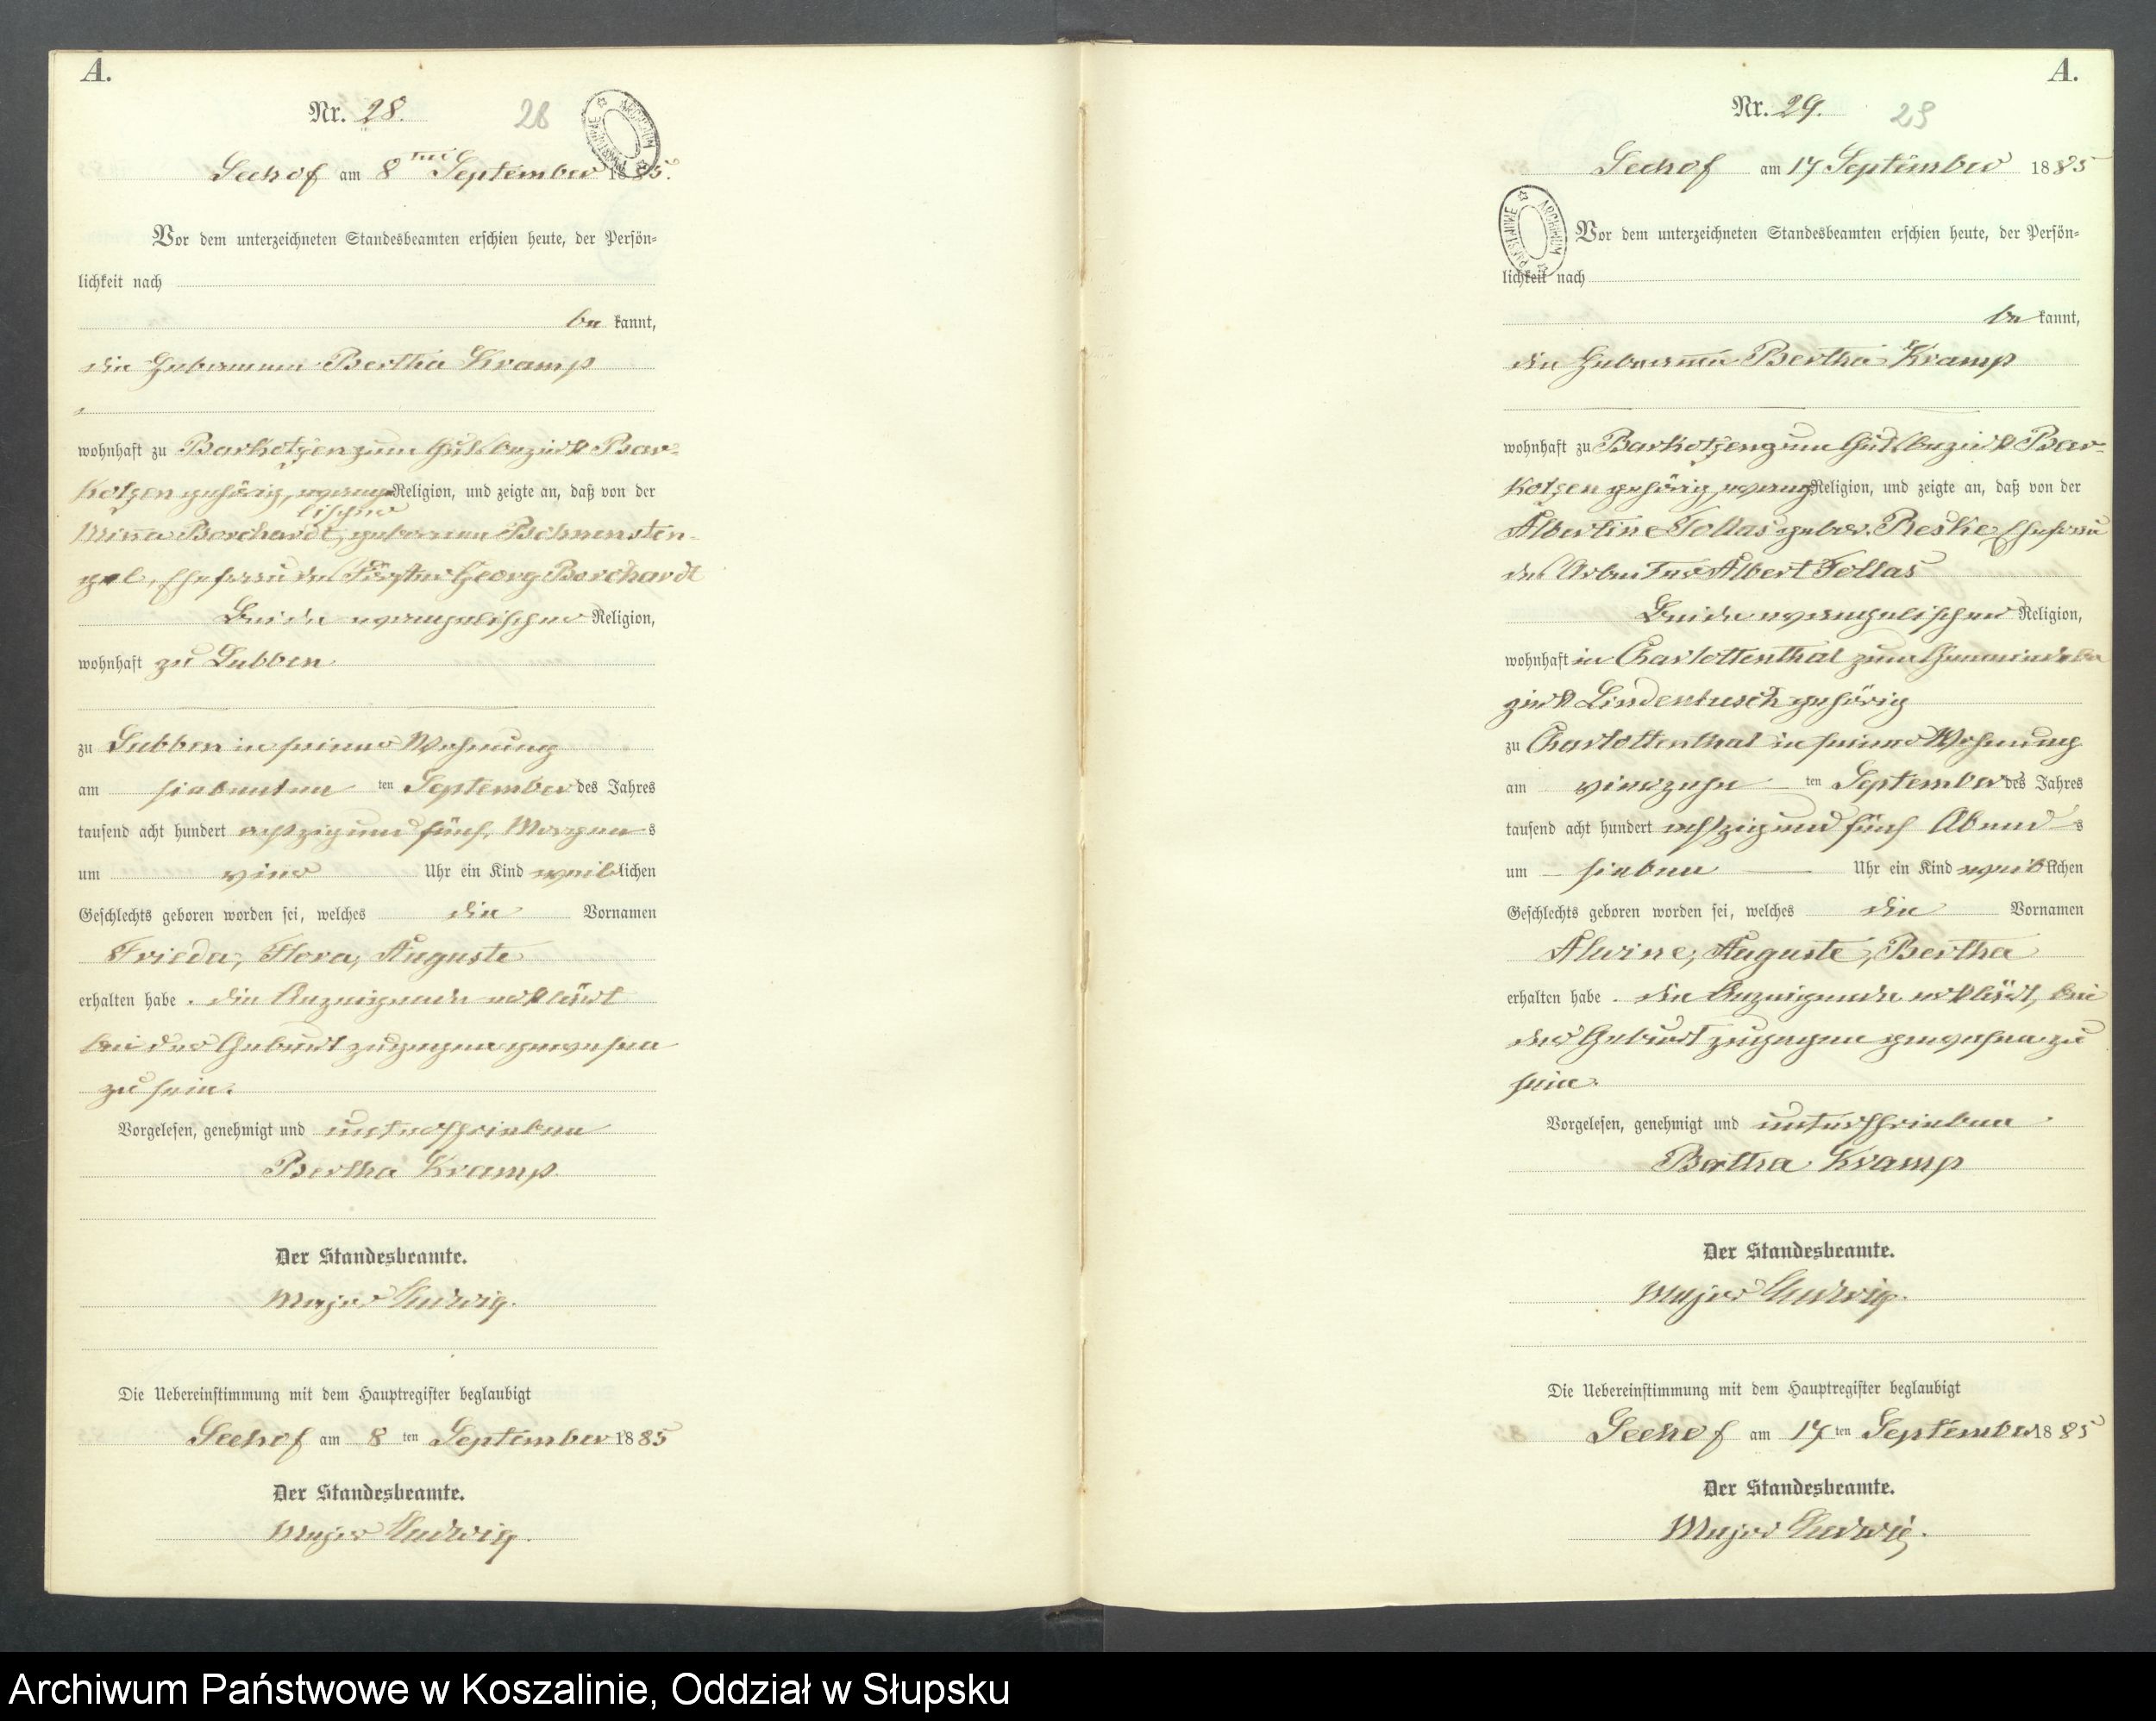 A.
Nr. 28.
28
ARCHIWUM PAŃSTWOWE
Seehof am 8 ten September 1885.
Vor dem unterzeichneten Standesbeamten erschien heute, der Persön=
lichkeit nach
be kannt,
die Hebamme Bertha Kramp
wohnhaft zu Barkotzen zum Gutsbezirk Bar=
kotzen gehörig, evange Religion, und zeigte an, daß von der
lischer
Minna Borchardt, geborenen
Ehefrau des Försters Georg Borchardt
Beide evangelischer Religion,
wohnhaft zu Lubben
zu Lubben in seiner Wohnung
am siebenten ten September des Jahres
tausend acht hundert achtzig und fünf, Morgens
um vier Uhr ein Kind weiblichen
Geschlechts geboren worden sei, welches die Vornamen
Frieda, Flora, Auguste
erhalten habe. die Anzeigende erklärt
bei der Geburt zugegen gewesen
zu sein.
Vorgelesen, genehmigt und unterschrieben
Bertha Kramp
Der Standesbeamte.
Major Ludwig.
Die Uebereinstimmung mit dem Hauptregister beglaubigt
Seehof am 8 ten September 1885
Der Standesbeamte.
Major Ludwig.
A.
Nr. 29.
29
Seehof am 17 September 1885
ARCHIWUM PAŃSTWOWE
Vor dem unterzeichneten Standesbeamten erschien heute, der Persön=
lichkeit nach
be kannt,
die Hebamme Bertha Kramp
wohnhaft zu Barkotzen zum Gutsbezirk Bar=
kotzen gehörig, evang Religion, und zeigte an, daß von der
Albertine Tollas gebor. Reske Ehefrau
des Arbeiters Albert Tollas
Beide evangelischer Religion,
wohnhaft in Charlottenthal zum Gemeindebe
zirk Lindenbusch gehörig
zu Charlottenthal in seiner Wohnung
am vierzehn ten September des Jahres
tausend acht hundert achtzig und fünf Abends
um sieben Uhr ein Kind weiblichen
Geschlechts geboren worden sei, welches die Vornamen
Alwine, Auguste, Bertha
erhalten habe. die Anzeigende erklärt, bei
der Geburt zugegen gewesen zu
sein.
Vorgelesen, genehmigt und unterschrieben
Bertha Kramp
Der Standesbeamte.
Major Ludwig.
Die Uebereinstimmung mit dem Hauptregister beglaubigt
Seehof am 17 ten September 1885
Der Standesbeamte.
Major Ludwig.
Archiwum Państwowe w Koszalinie, Oddział w Słupsku